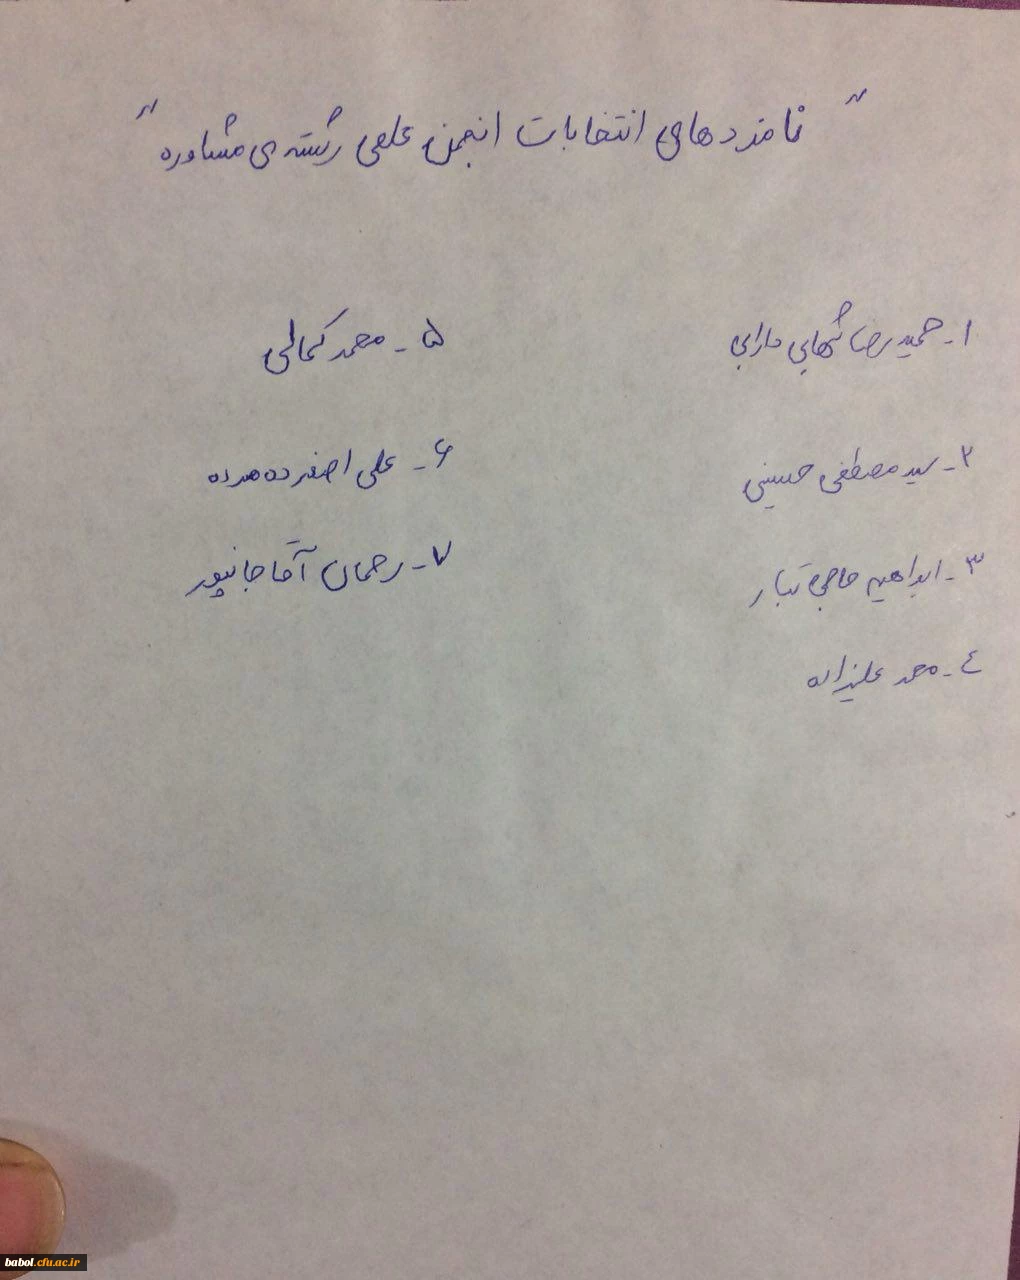 "نامزدهای انتخابات انجمن علمی رشته‌ی مشاوره"
۱- حمیدرضا شهابی دارابی
۲- سید مصطفی حسینی
۳- ابراهیم حاجی تبار
٤- محمد علیزاده
۵- محمد کمالی
۶- علی اصغر ده مرده
۷- رحمان آقاجانپور
babol.cfu.ac.ir